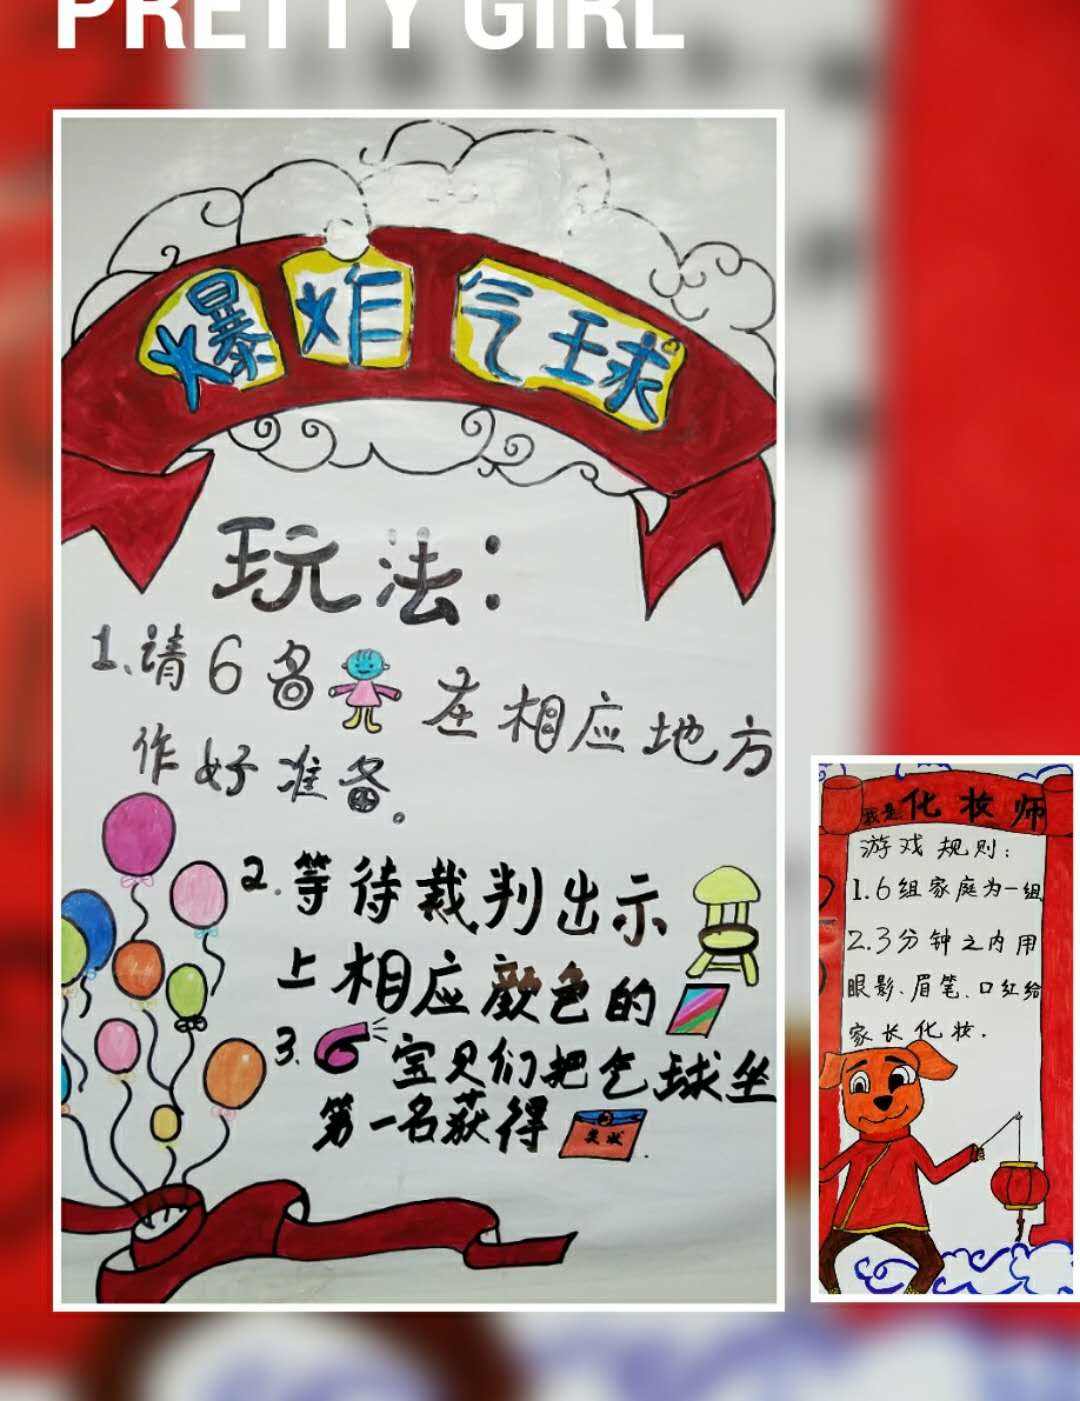 PRETTY GIRL
爆炸气球
玩法：
1、请6名 在相应地方
作好准备。
2.等待裁判出示
上相应颜色的
3. 宝贝们把气球坐
第一名获得
奖状
我是化妆师
游戏规则：
1.6组家庭为一组
2.3分钟之内用
眼影、眉笔、口红给
家长化妆.